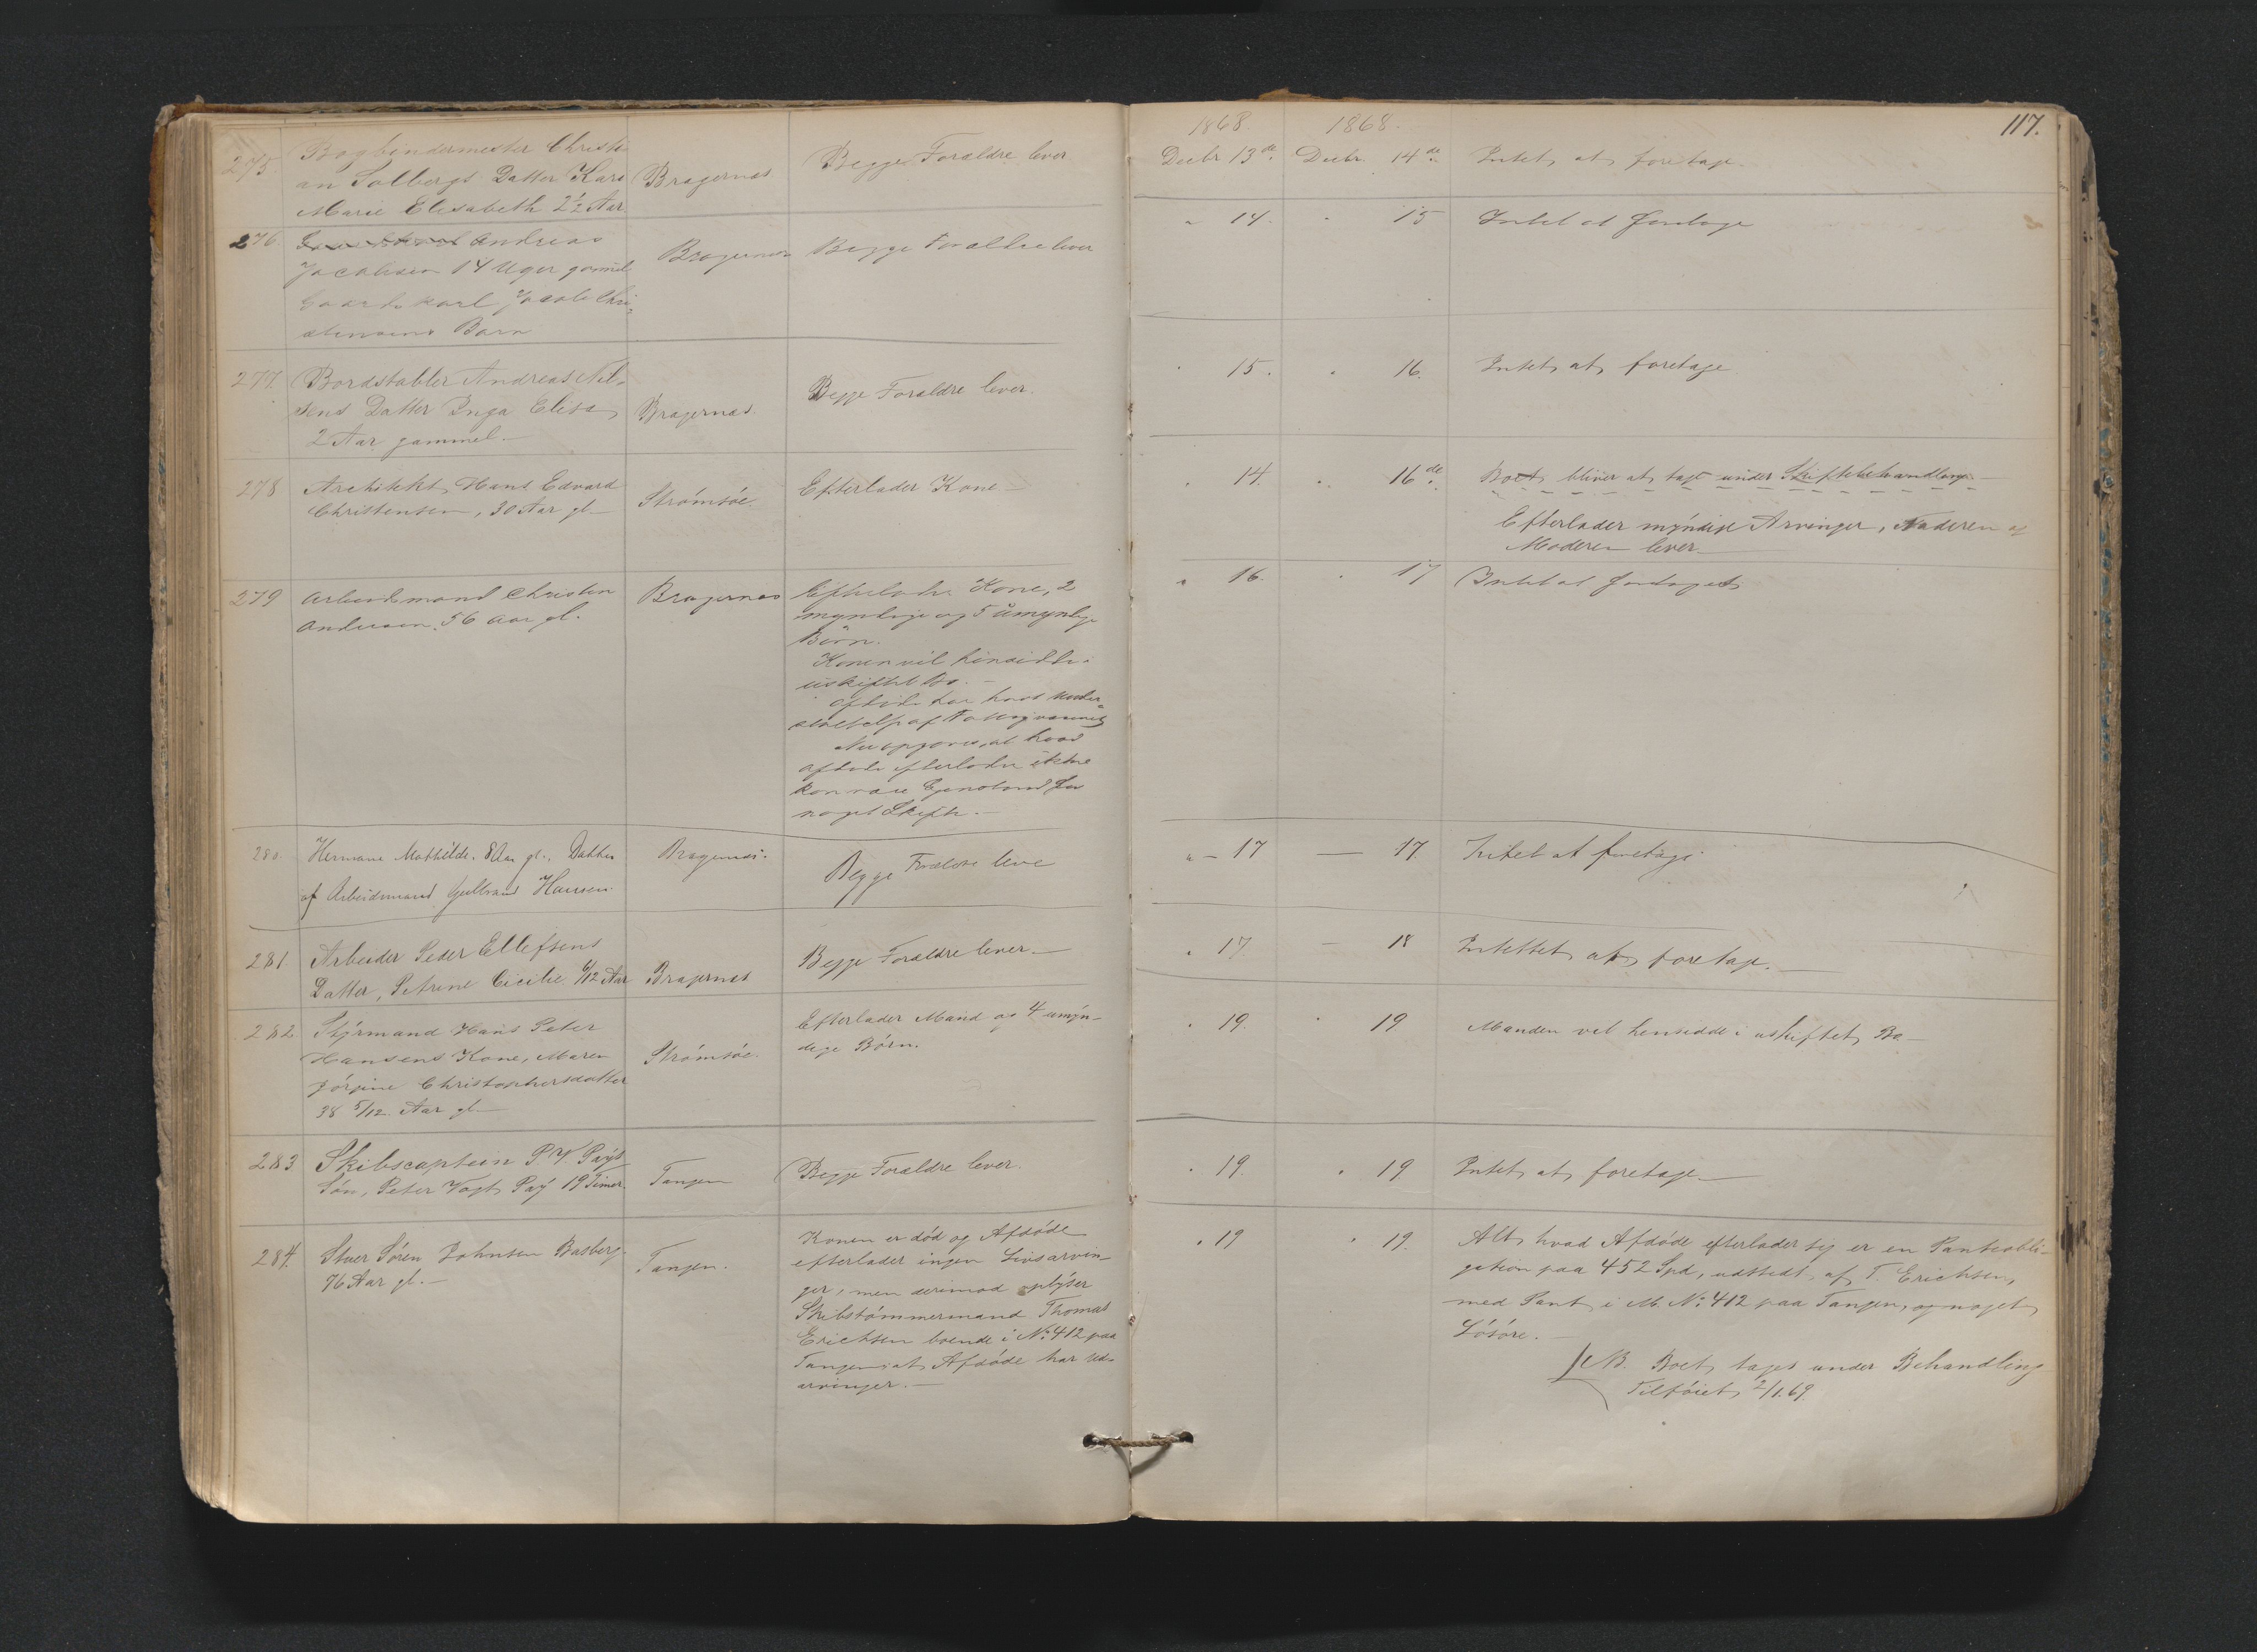 1868.
1868.
117.
275.
Bogbindermester Christi
an Solbergs Datter Kara
Marie Elisabeth 2½ Aar
Bragernæs
Begge Forældre lever.
Decbr 13de.
Decbr. 14de.
Intet at foretage.
276.
Andreas
Jacobsen 14 Uger gammel
Gaardskarl Jacob Chri-
stensens Barn
Bragernæs
Begge Forældre lever
" 14.
" 15
Intet at foretage
277.
Bordstabler Andreas Niel-
sens Datter Inga Elisa
2 Aar gammel.
Bragernæs.
Begge Forældre lever.
" 15.
" 16.
Intet at foretage.
278
Architekt Hans Edvard
Christensen, 30 Aar gl.
Strømsøe.
Efterlader Kone.
" 14.
" 16de.
Boet bliver at tage under Skiftebehandling.
Efterlader myndige Arvinger, Faderen og
Moderen lever.
279
Arbeidsmand Christen
Andersen. 56 Aar gl.
Bragernæs
Efterlader Kone, 2
myndige og 5 umyndige
Børn.
Konen vil hensidde i
uskiftet Bo.
Afdøde har havt under-
støttelse af Fattigvæsenet
opgives, at hvad
Afdøde efterlader ikke
kan være Gjenstand for
noget Skifte.
" 16.
" 17
Intet at foretaget
280.
Hermane Mathilde. 8 Aar gl., Datter
af Arbeidsmand Gulbrand Hansen.
Bragernæs.
Begge Forældre leve
" 17
17.
Intet at foretage
281
Arbeider Peder Ellefsens
Datter, Petrine Cicilie. 6/12 Aar
Bragernæs
Begge Forældre lever
" 17
18
Intettet at foretage.
282.
Styrmand Hans Peter
Hansens Kone, Maren
Jørgine Christophersdatter
38 5/12. Aar gl.
Strømsøe.
Efterlader Mand og 4 umyn-
dige Børn.
" 19.
" 19
Manden vil hensidde i uskiftet Bo.
283
Skibscaptein P. V. Paÿs
Søn, Peter Vogt Paÿ 19 Timer.
Tangen
Begge Forældre lever.
" 19.
" 19.
Intet at foretage
284.
Stuer Søren Johnsen Basberg
76 Aar gl.
Tangen.
Konen er død og Afdøde
efterlader ingen Livsarvin-
ger, men derimod oplyser
Skibstømmermand Thomas
Erichsen boende i No. 412 paa
Tangen, at Afdøde har Ud-
arvinger.
" 19
" 19.
Alt hvad Afdøde efterlader sig er en Panteobli-
gation paa 452 Spd, udstedt af T. Erichsen,
med Pant i M. No. 412 paa Tangen, og noget
Løsøre.
NB. Boet tages under Behandling
Tilføiet 2/1.69.